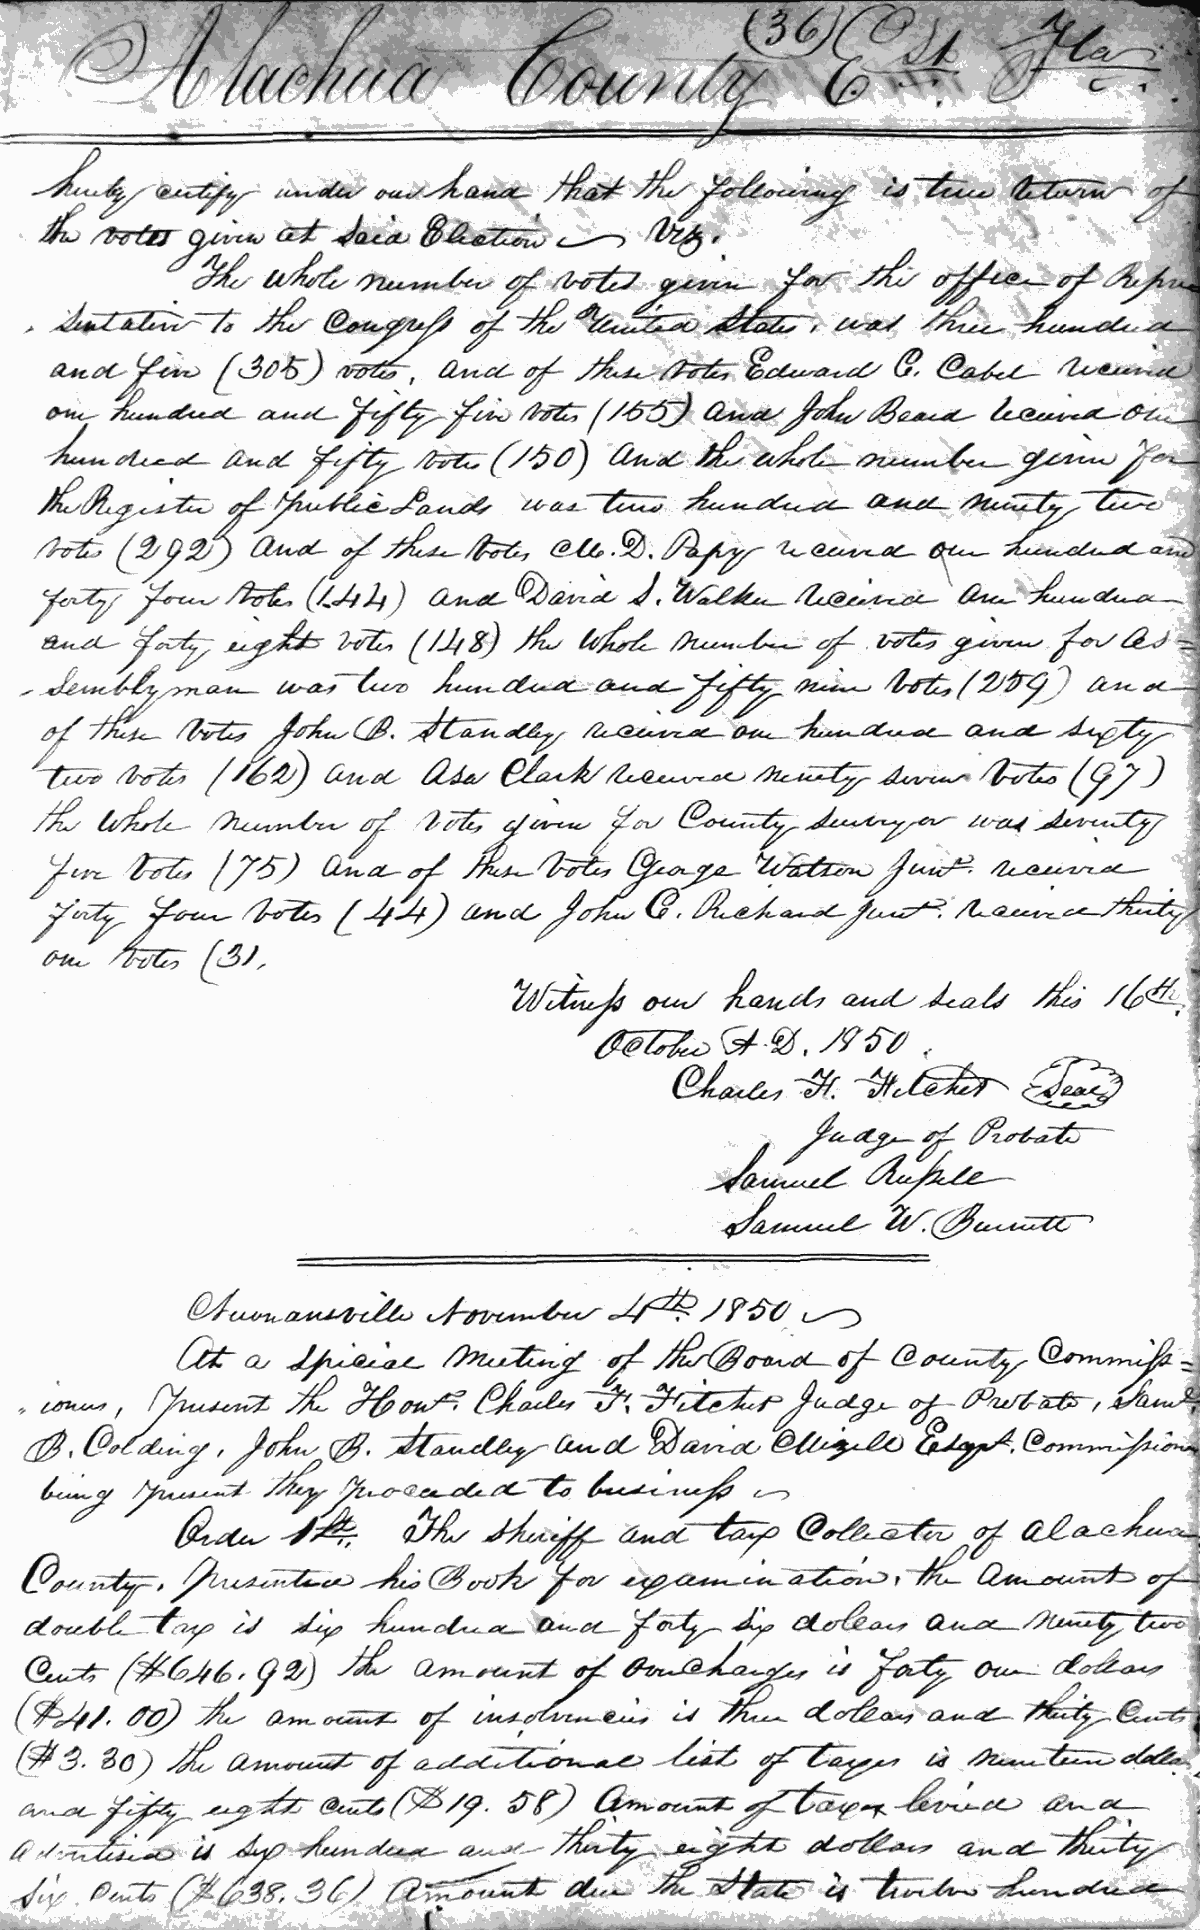 (36)
Alachua County E. St. Fla
hereby certify under our hand that the following is true return of
the votes given at said Election Viz.
The whole number of votes given for the office of Repre
sentative to the Congress of the United States, was three hundred
and five (305) votes, and of these votes Edward C. Cabel received
one hundred and fifty five votes (155) and John Beard received one
hundred and fifty votes (150) and the whole number given for
the Register of public Lands was two hundred and ninety two
votes (292) and of these votes M. D. Papy received one hundred and
forty four votes (144) and David S. Walker received one hundred
and forty eight votes (148) the whole number of votes given for as=
-semblyman was two hundred and fifty nine votes (259) and
of these votes John B. Standley received one hundred and sixty
two votes (162) and Asa Clark received ninety seven votes (97)
the whole number of votes given for County surveyor was seventy
five votes (75) and of these votes George Watson Junr. received
forty four votes (44) and John C. Richard Junr. received thirty
one votes (31,
Witness our hands and seals this 16th.
October A.D. 1850.
Charles F. Fitchet Seal
Judge of Probate
Samuel Russell
Samuel W. Burnett
Newnansville November 4th. 1850
At a special Meeting of the Board of County Commiss=
ioners, present the Honr. Charles F. Fitchet Judge of Probate, Saml.
B. Colding, John B. Standley and David Mizell Esqr. Commissioners
being present they proceeded to business
Order 1st. The sheriff and tax Collector of Alachua
County, presented his Book for examination, the amount of
double tax is six hundred and forty six dollars and ninety two
Cents ($646.92) the amount of overcharges is forty one dollars
($41.00) the amount of insolvencies is three dollars and thirty Cents
($3.30) the amount of additional list of taxes is nineteen dollars
and fifty eight cents ($19.58) Amount of taxes levied and
advertised is six hundred and thirty eight dollars and thirty
six Cents ($638.36) Amount due the State is twelve hundred